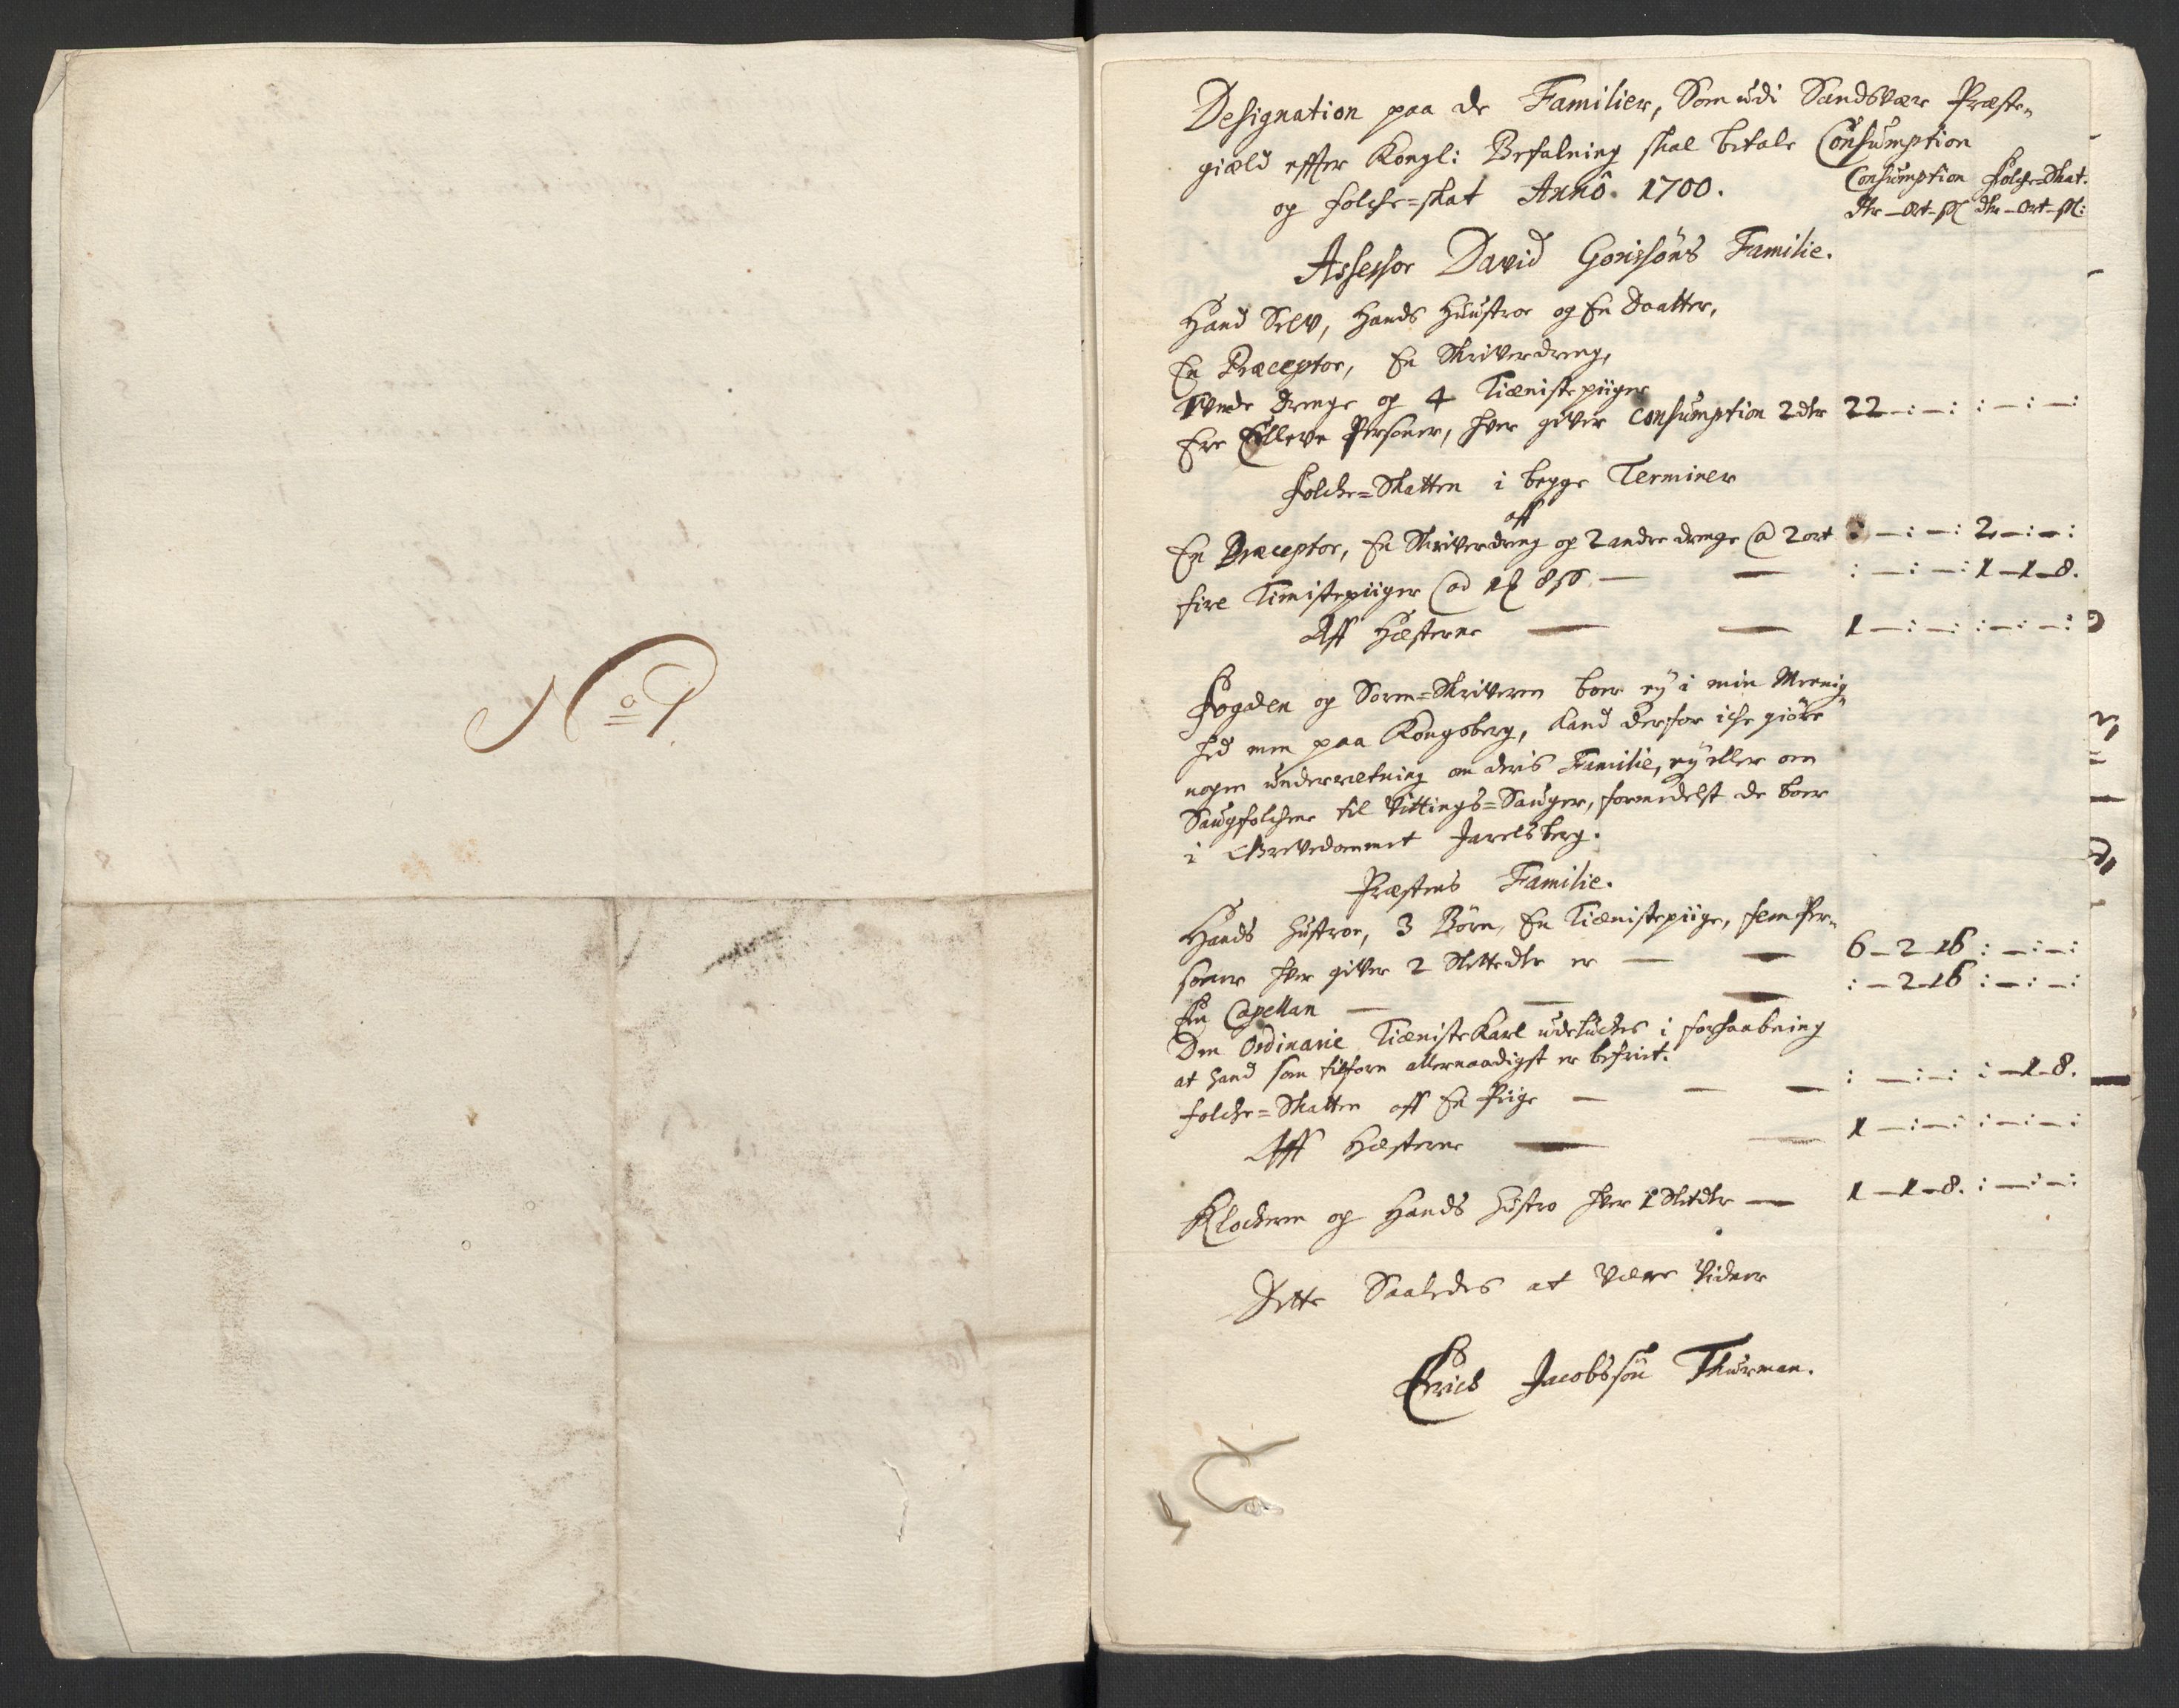 No 1.
Designation paa de Familier, Som udi Sandsvær Præste-
gield effter Kongl: Befalning skal betale Consumption
og folche=skat Annô. 1700.
Consumption Folche=Skat.
dlr — Ort — sk dlr — Ort — sk:
Assessor David Gorissøns Familie.
Hand Selv, Hands Huustroe og En Daatter,
En Præceptor, En Skriverdreng,
Tvende Drenge og 4 Tienistepiiger
Ere Elleve Personer, hver giver Consumption 2 dlr 22 — : — : : — : — :
Folche=Skatten i begge Terminer
aff
En Præceptor, En Skriverdreng og 2 andre drenge @ 2 ort : — : — : 2 — : — :
fire Tienistepiiger @ 1 8 — — : — : — : 1 — 1 — 8.
Aff Hæsterne — — 1 — : — : : — : — :
Fogden og Soren=Skriveren boer ey i min Meenig-
hed men paa Kongsberg, kand derfor iche giøre
nogen underretning om deris Familie, ey eller om
Saugfolchene til Vittings=Sauger, formedelst de boer
i Grevedømmet Jarelsberg.
Præstens Familie.
Hands Hustroe, 3 Børn, En Tienistepiige, fem Per-
soner hver giver 2 Slettedlr er — — 6 — 2 — 16 : — : — :
En Capellan — — — : — 2 — 16 : — : — :
Den Ordinarie Tieniste Karl udeluches i forhaabning
at hand som tilforn allernaadigst er befriet.
folche=Skatten aff En Piige — — — : — : — : : — 1 — 8.
Aff Hæsterne — — 1 — : — : : — : — :
Klocheren og Hands Hustro hver 1 Sletdlr — 1 — 1 — 8. : — : — :
Dette Saaledes at være Vidner
Erich Jacobssøn Thurman.